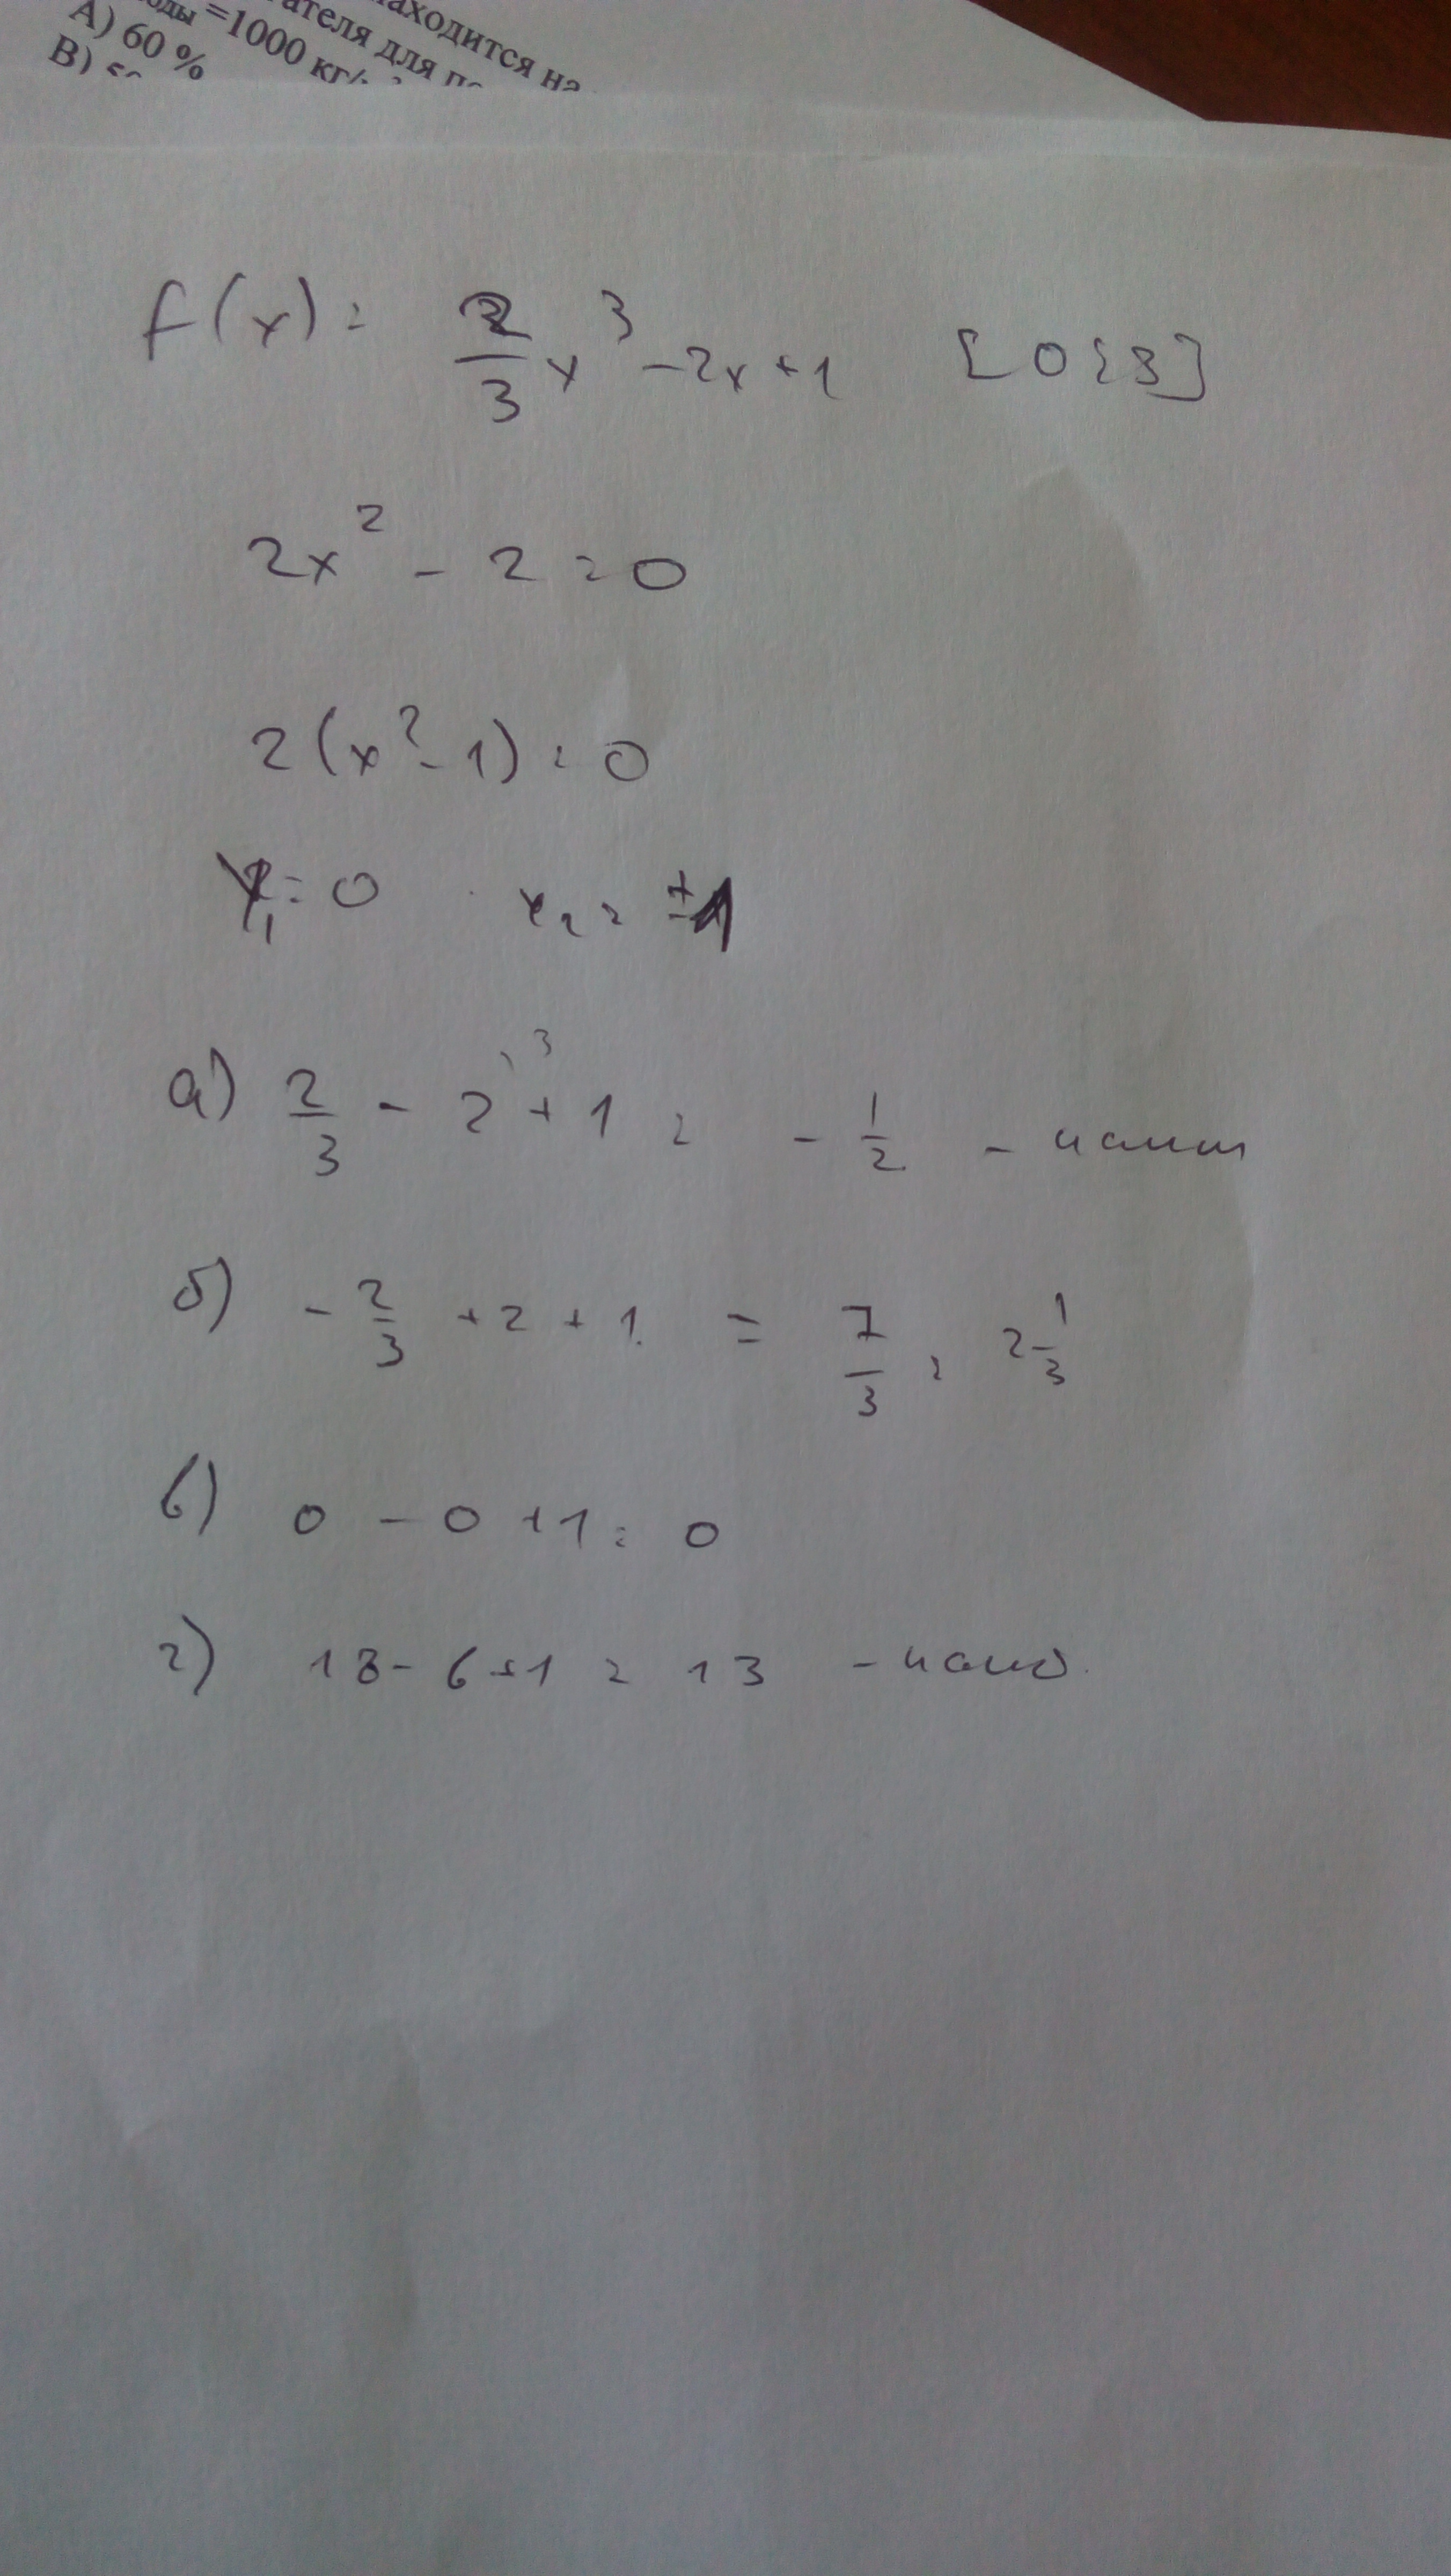 находится на
гателя для п
оды =1000 кг/
A) 60 %
B)
f(x) = 2/3 x³ - 2x + 1 [0; 3]
2x² - 2 = 0
2(x² - 1) = 0
x₁ = 0 x₂ = ±1
а) 2/3 - 2 + 1 = - 1/2 - наим
б) - 2/3 + 2 + 1 = 7/3 = 2 1/3
в) 0 - 0 + 1 = 0
г) 18 - 6 + 1 = 13 - наиб.